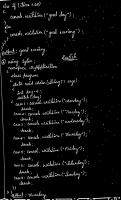 else if (time < 20)
{
console.writeline ("good day");
}
else
{
console.writeline ("good evening");
}
output: good evening.
using System;
namespace
class program
{
static void main (string[] args)
{
int day = 4;
switch (day)
{
case 1: console.writeline ("Monday");
break;
case 2: console.writeline ("Tuesday");
break;
case 3: console.writeline ("Wednesday");
break;
case 4: console.writeline ("Thursday");
break;
case 5: console.writeline ("Friday");
break;
case 6: console.writeline ("Saturday");
break;
case 7: console.writeline ("Sunday");
break;
}
output: Thursday